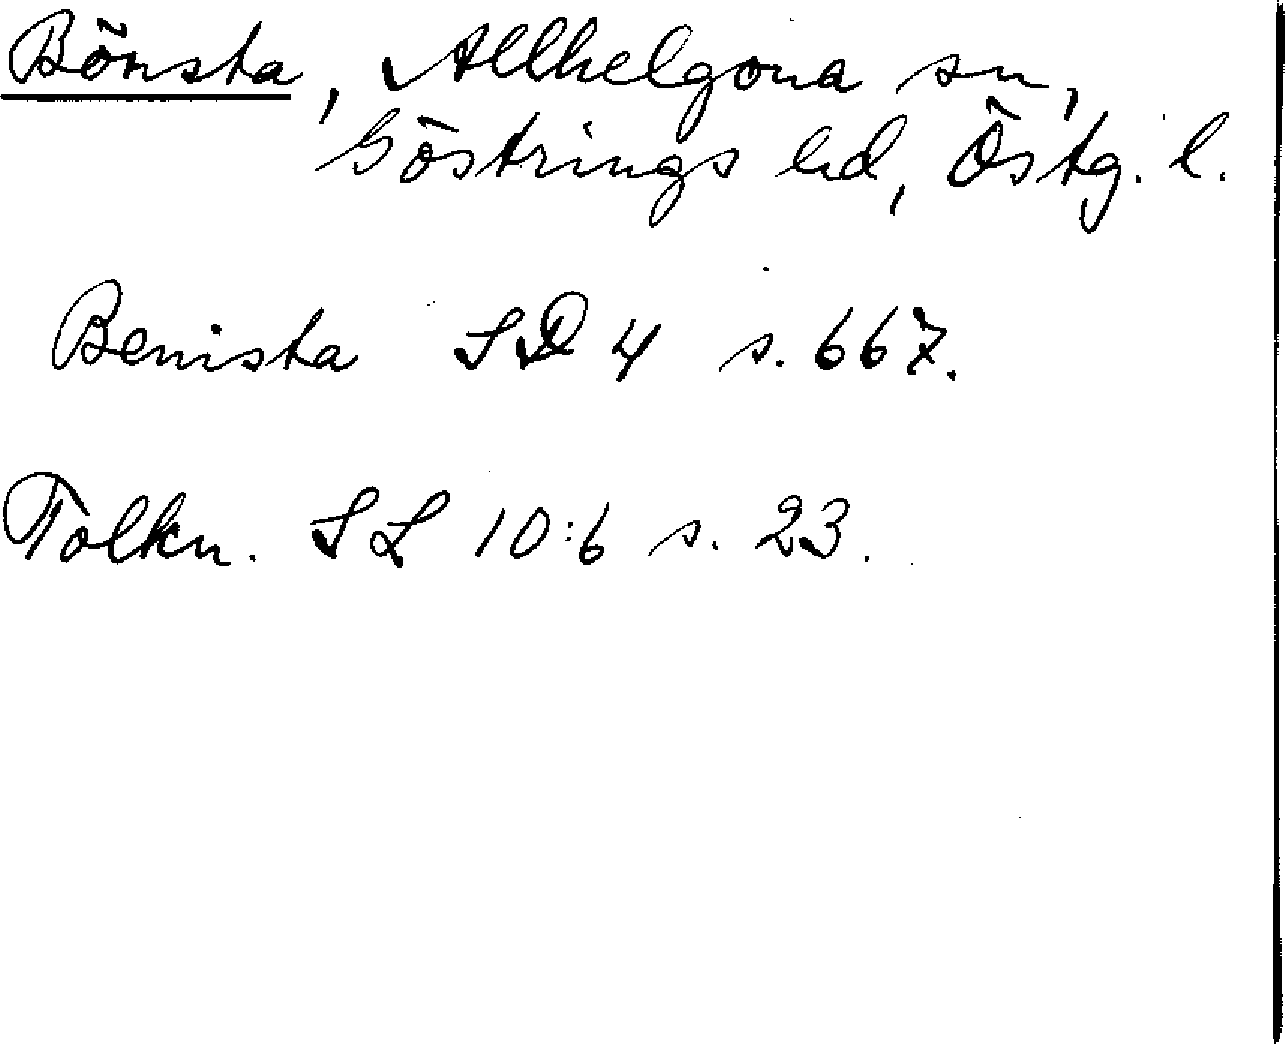 Bönsta, Allhelgona sn,
Göstrings hd, Östg. l.
Benista SD 4 s. 667.
Tolkn. SL 10:6 s. 23.